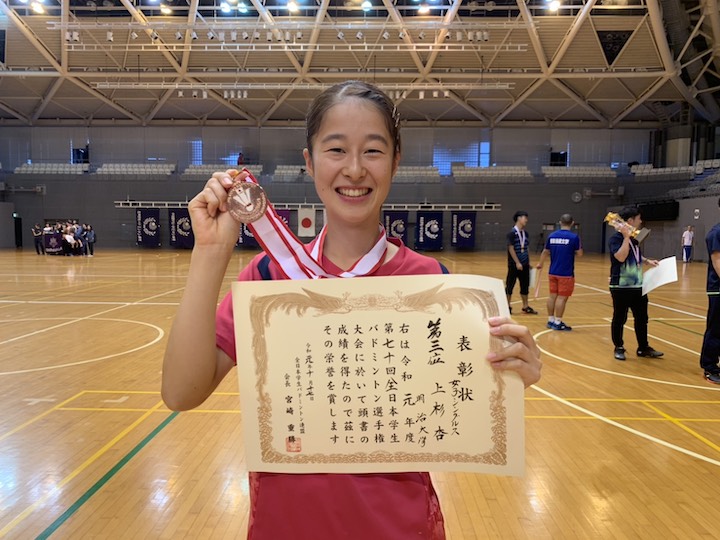 表彰状
女子シングルス
第三位 上杉杏
明治大学
右は令和元年度
第七十回全日本学生
バドミントン選手権
大会に於いて頭書の
成績を得たので茲に
その栄誉を賞します
令和元年十月十七日
全日本学生バドミントン連盟
会長 宮崎重勝